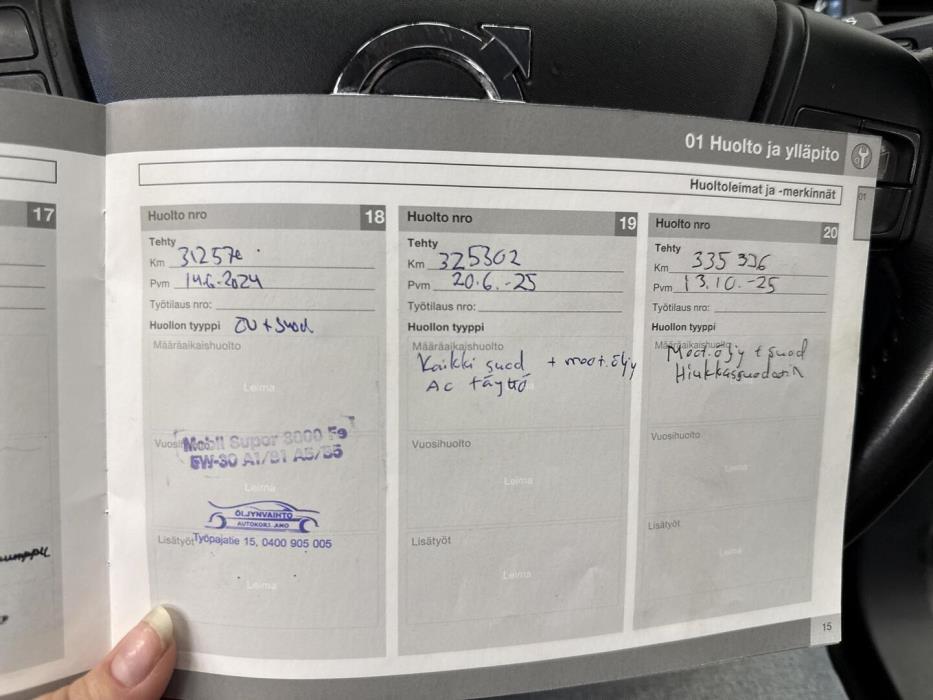 01 Huolto ja ylläpito
Huoltoleimat ja -merkinnät
01
17
Huolto nro 18
Tehty
Km
Pvm 14.6.2024
Työtilaus nro:
Huollon tyyppi ÖV + suod
Määräaikaishuolto
Leima
Mobil Super 3000 Fe
5W-30 A1/B1 A5/B5
Leima
ÖLJYNVAIHTO
AUTOKORJAAMO
Lisätyöt Työpajatie 15, 0400 905 005
Leima
Huolto nro 19
Tehty
Km 325302
Pvm 20.6.-25
Työtilaus nro:
Huollon tyyppi
Määräaikaishuolto
Kaikki suod + moot.öljy
AC täyttö
Vuosihuolto
Leima
Lisätyöt
Leima
Huolto nro 20
Tehty
Km 335336
Pvm 13.10.-25
Työtilaus nro:
Huollon tyyppi
Määräaikaishuolto
Moot.öljy + suod
Hiukkassuodatin
Vuosihuolto
Leima
Lisätyöt
Leima
15